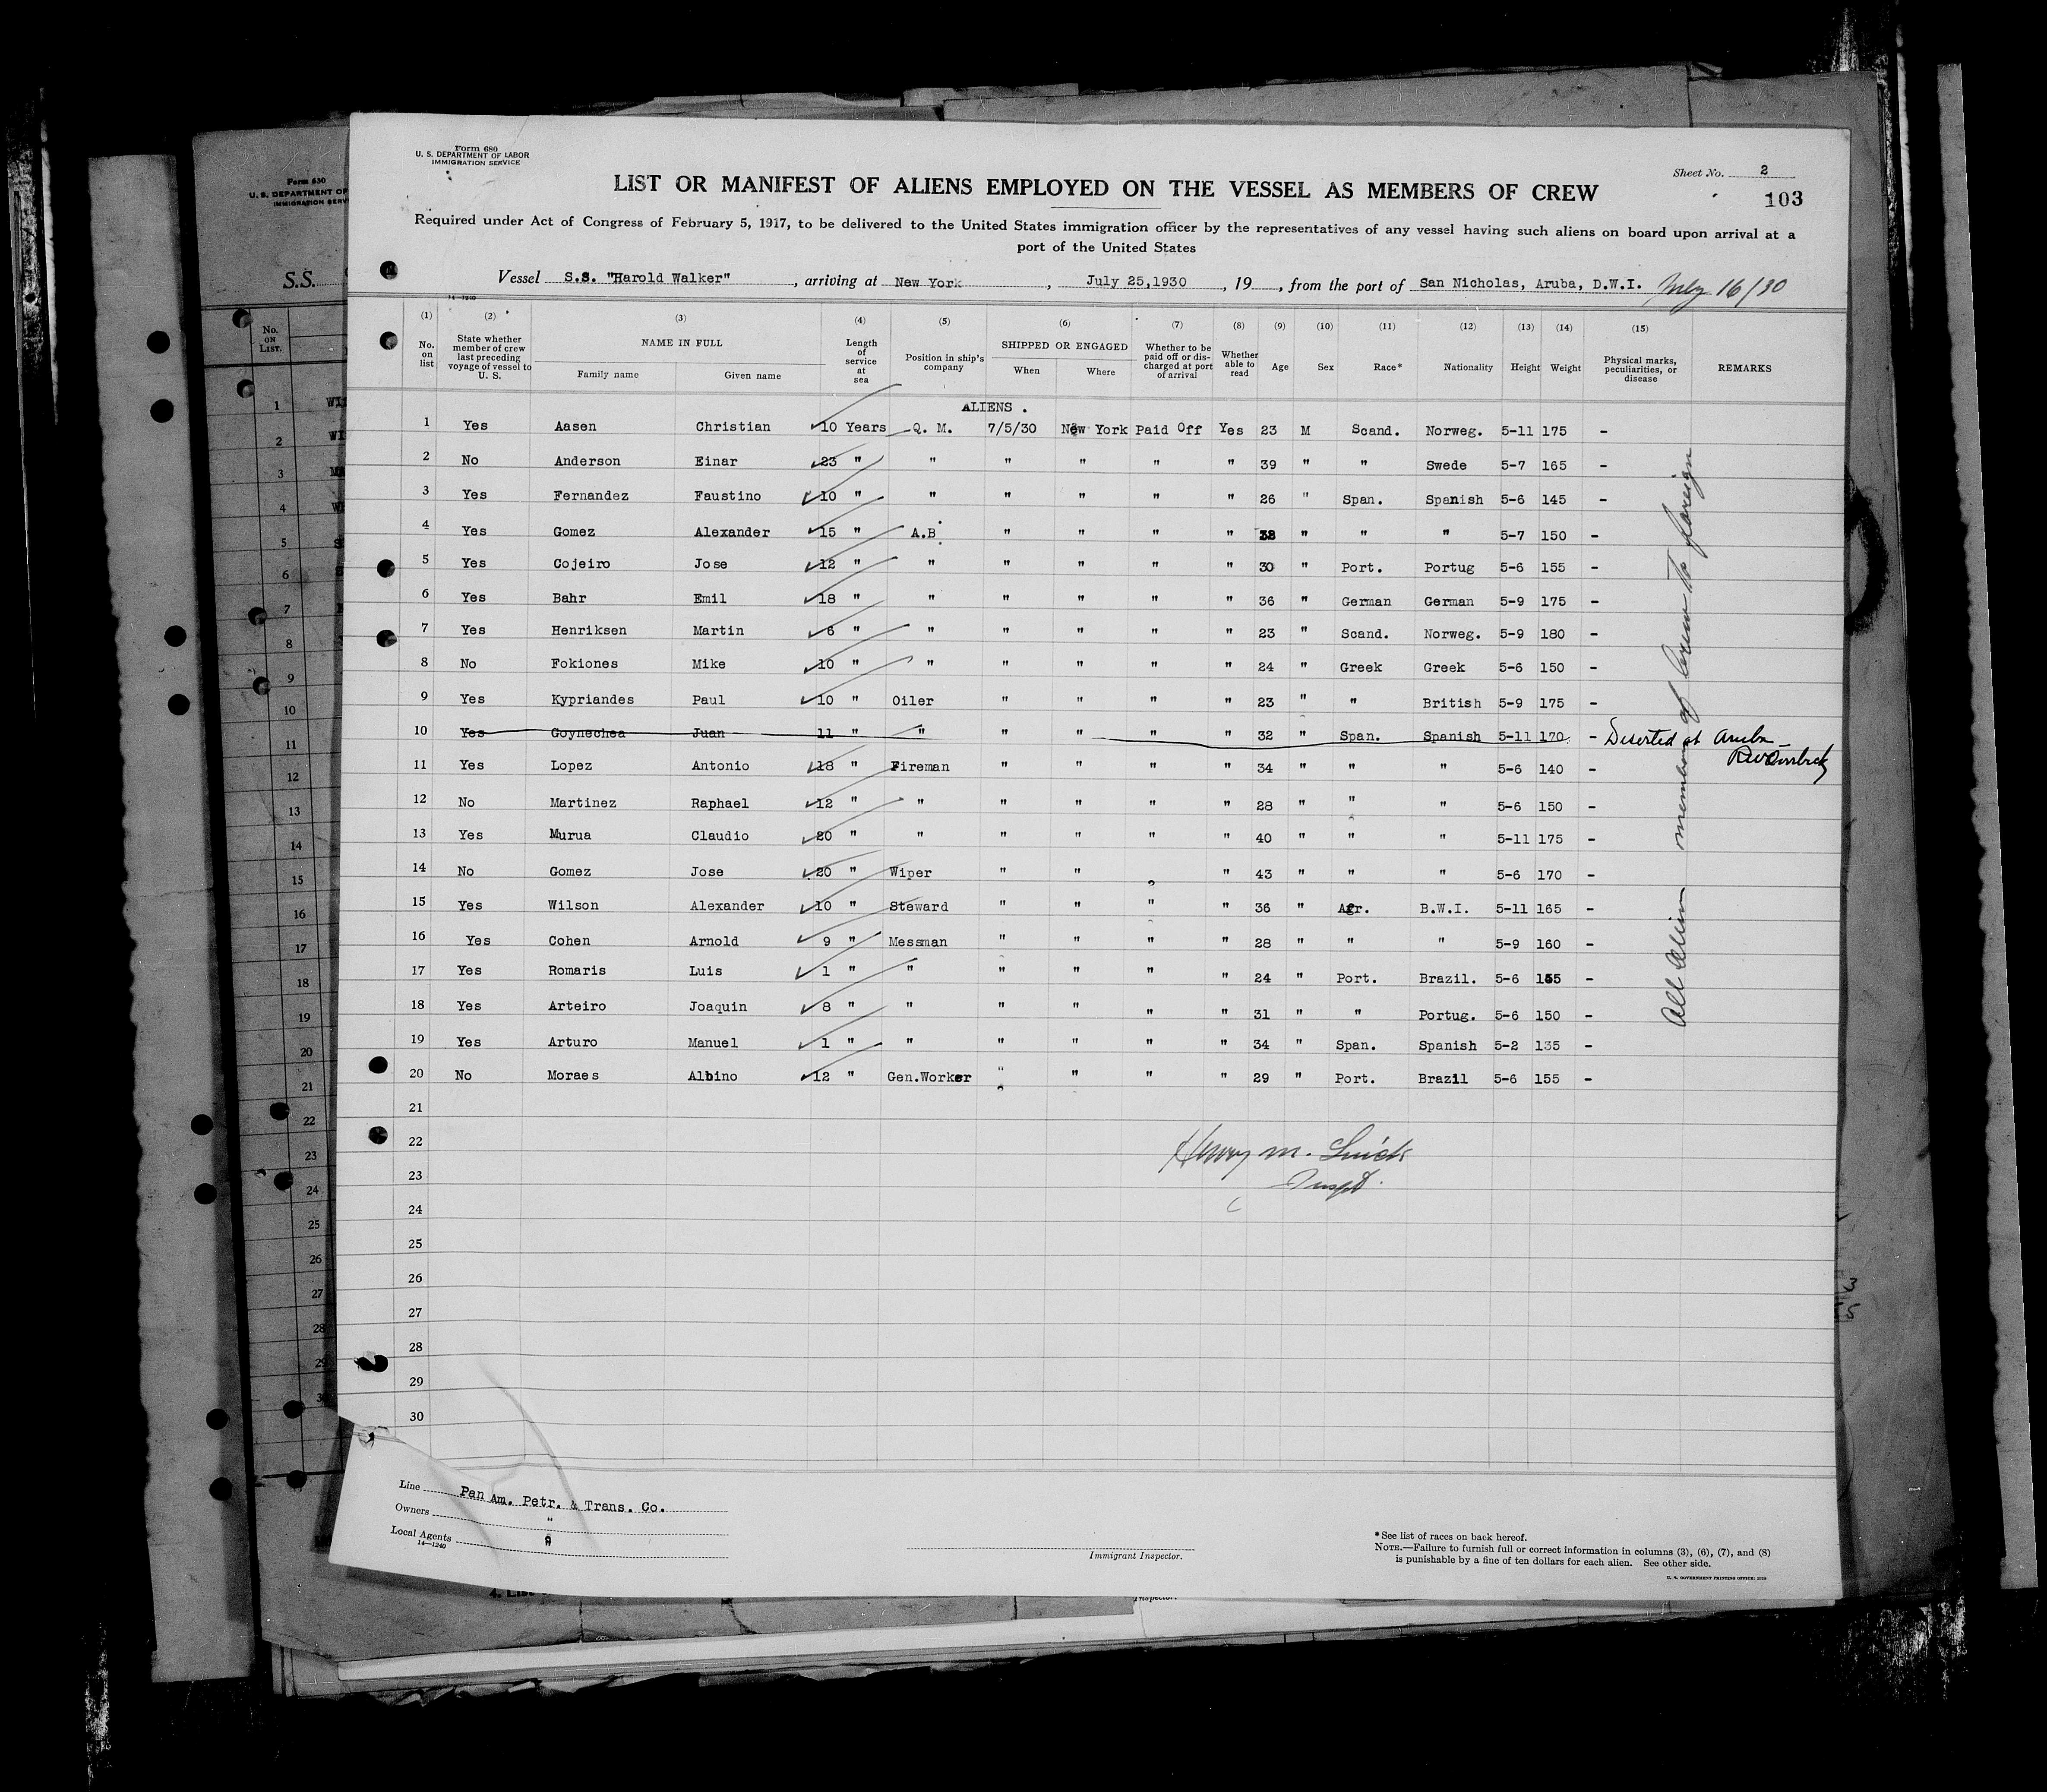 Form 680
U. S. DEPARTMENT OF LABOR
IMMIGRATION SERVICE
Sheet No. 2
103
LIST OR MANIFEST OF ALIENS EMPLOYED ON THE VESSEL AS MEMBERS OF CREW
Required under Act of Congress of February 5, 1917, to be delivered to the United States immigration officer by the representatives of any vessel having such aliens on board upon arrival at a
port of the United States
Vessel S.S. "Harold Walker", arriving at New York, July 25,1930, 19, from the port of San Nicholas, Aruba, D.W.I. July 16/30
(1) No. on list (2) State whether member of crew last preceding voyage of vessel to U. S. (3) NAME IN FULL Family name Given name (4) Length of service at sea (5) Position in ship's company (6) SHIPPED OR ENGAGED When Where (7) Whether to be paid off or discharged at port of arrival (8) Whether able to read (9) Age (10) Sex (11) Race* (12) Nationality (13) Height (14) Weight (15) Physical marks, peculiarities, or disease REMARKS
ALIENS.
1 Yes Aasen Christian 10 Years Q. M. 7/5/30 New York Paid Off Yes 23 M Scand. Norweg. 5-11 175 -
2 No Anderson Einar 23 " " " " " " 39 " " Swede 5-7 165 -
3 Yes Fernandez Faustino 10 " " " " " " 26 " Span. Spanish 5-6 145 -
4 Yes Gomez Alexander 15 " A.B. " " " " 38 " " " 5-7 150 -
5 Yes Cojeiro Jose 12 " " " " " " 30 " Port. Portug 5-6 155 -
6 Yes Bahr Emil 18 " " " " " " 36 " German German 5-9 175 -
7 Yes Henriksen Martin 6 " " " " " " 23 " Scand. Norweg. 5-9 180 -
8 No Fokiones Mike 10 " " " " " " 24 " Greek Greek 5-6 150 -
9 Yes Kypriandes Paul 10 " Oiler " " " " 23 " " British 5-9 175 -
10 Yes Goynechea Juan 11 " " " " " " 32 " Span. Spanish 5-11 170 - Deserted at Aruba
11 Yes Lopez Antonio 18 " Fireman " " " " 34 " " " 5-6 140 -
12 No Martinez Raphael 12 " " " " " " 28 " " " 5-6 150 -
13 Yes Murua Claudio 20 " " " " " " 40 " " " 5-11 175 -
14 No Gomez Jose 20 " Wiper " " " " 43 " " " 5-6 170 -
15 Yes Wilson Alexander 10 " Steward " " " " 36 " Afr. B.W.I. 5-11 165 -
16 Yes Cohen Arnold 9 " Messman " " " " 28 " " " 5-9 160 -
17 Yes Romaris Luis 1 " " " " " " 24 " Port. Brazil. 5-6 155 -
18 Yes Arteiro Joaquin 8 " " " " " " 31 " " Portug. 5-6 150 -
19 Yes Arturo Manuel 1 " " " " " " 34 " Span. Spanish 5-2 135 -
20 No Moraes Albino 12 " Gen.Worker " " " " 29 " Port. Brazil 5-6 155 -
21
22
23
24
25
26
27
28
29
30
All Alien members of crew to foreign
Henry M.
Inspt.
Line Pan Am. Petr. & Trans. Co.
Owners "
Local Agents "
14—1240
Immigrant Inspector.
*See list of races on back hereof.
NOTE.—Failure to furnish full or correct information in columns (3), (6), (7), and (8)
is punishable by a fine of ten dollars for each alien. See other side.